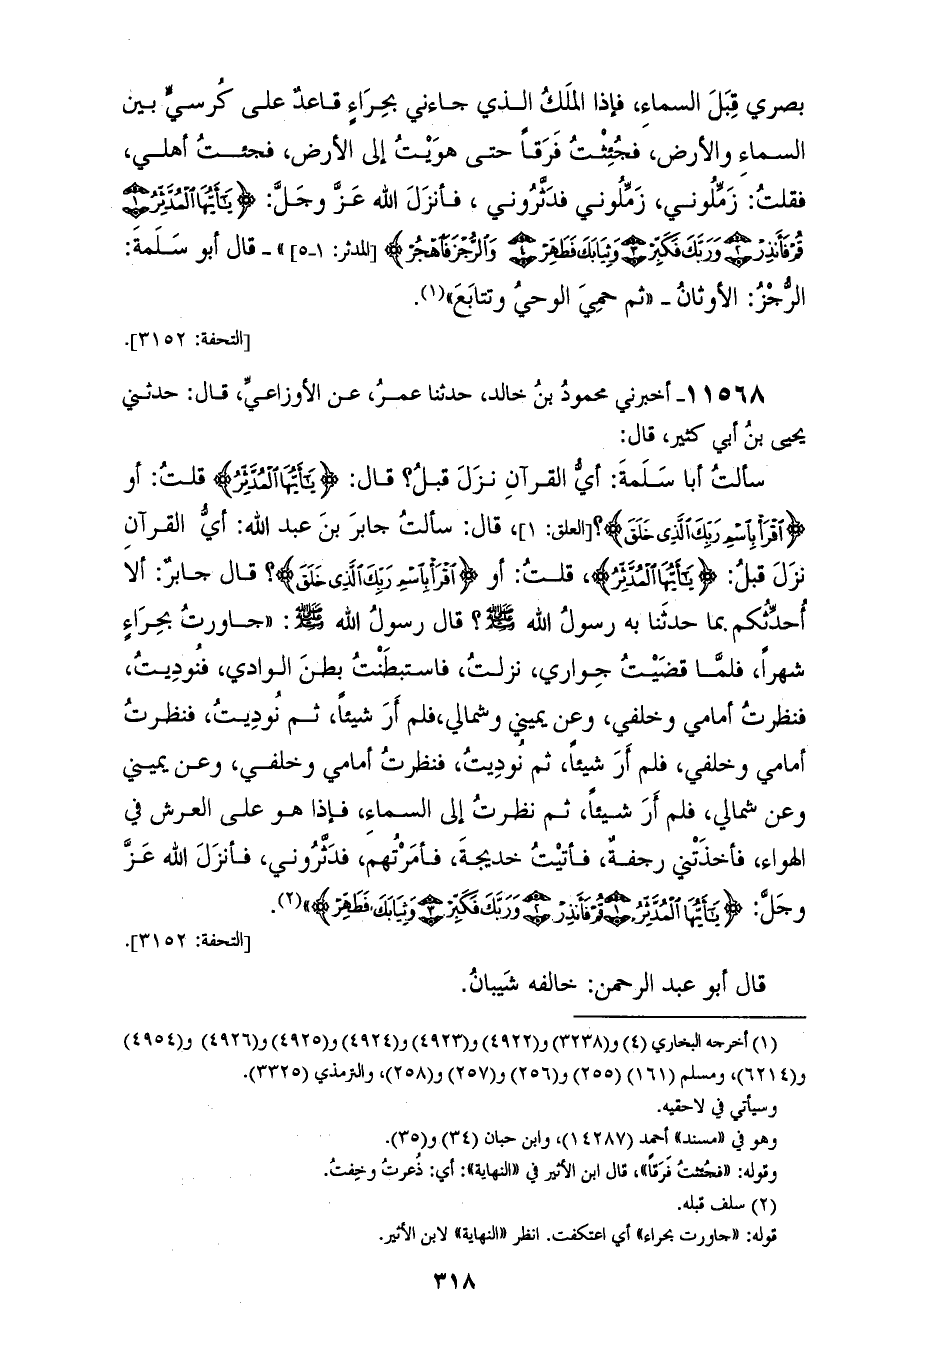 بصري قِبَلَ السماءِ، فإذا المَلَكُ الـذي جـاءني بحِرَاءٍ قـاعدٌ علـى كُرسـيٍّ بـين
السـماءِ والأرض، فجُئِثْـتُ فَرَقـاً حتـى هوَيْـتُ إلى الأرض، فجئـتُ أهلـي،
فقلتُ: زَمِّلُونـي، زَمِّلُوني فدَثِّرُوني ، فـأنزَلَ الله عَـزَّ وجَـلَّ: ﴿ يَٰٓأَيُّهَا ٱلْمُدَّثِّرُ ۝١
قُرْ فَأَنذِرْ ۝٢ وَرَبَّكَ فَكَبِّرْ ۝٣ وَثِيَابَكَ فَطَهِّرْ ۝٤ وَٱلرُّجْزَ فَٱهْجُرْ ﴾ [المدثر: ١-٥] » - قال أبو سَـلَمةَ:
الرُّجْزُ: الأوثانُ - «ثم حمِيَ الوحيُ وتتابَعَ»(١).
[التحفة: ٣١٥٢].
١١٥٦٨- أخبرني محمودُ بنُ خالد، حدثنا عمـرُ، عـن الأوزاعيِّ، قـال: حدثـني
يحيى بنُ أبي كثير، قال:
سألتُ أبا سَـلَمةَ: أيُّ القـرآنِ نـزَلَ قبـلُ؟ قـال: ﴿ يَٰٓأَيُّهَا ٱلْمُدَّثِّرُ ﴾ قلـتُ: أو
﴿ ٱقْرَأْ بِٱسْمِ رَبِّكَ ٱلَّذِى خَلَقَ ﴾؟ [العلق: ١]، قال: سـألتُ جابرَ بـنَ عبـد الله: أيُّ القـرآنِ
نزَلَ قبلُ: ﴿ يَٰٓأَيُّهَا ٱلْمُدَّثِّرُ ﴾، قلـتُ: أو ﴿ ٱقْرَأْ بِٱسْمِ رَبِّكَ ٱلَّذِى خَلَقَ ﴾؟ قـال جـابرٌ: ألا
أُحدِّثُكم بما حدثَنا به رسولُ الله ﷺ؟ قال رسولُ الله ﷺ: «جـاورتُ بحِراءٍ
شهراً، فلمَّـا قضَيْـتُ جِواري، نزلـتُ، فاسـتبطَنْتُ بطنَ الـوادي، فنُودِيـتُ،
فنظرتُ أمامي وخلفي، وعن يميني وشمالي،فلم أرَ شيئاً، ثـم نُودِيـتُ، فنظـرتُ
أمامي وخلفي، فلم أرَ شيئاً، ثم نُودِيتُ، فنظرتُ أمامي وخلفـي، وعـن يميـني
وعن شمالي، فلم أرَ شـيئاً، ثـم نظـرتُ إلى السـماءِ، فـإذا هـو علـى العـرش في
الهواء، فأخذَتْني رجفـةٌ، فـأتيْتُ خديجـةَ، فـأمَرْتُهم، فدَثَّرُونـي، فـأنزَلَ الله عَـزَّ
وجَلَّ: ﴿ يَٰٓأَيُّهَا ٱلْمُدَّثِّرُ ۝١ قُرْ فَأَنذِرْ ۝٢ وَرَبَّكَ فَكَبِّرْ ۝٣ وَثِيَابَكَ فَطَهِّرْ ﴾»(٢).
[التحفة: ٣١٥٢].
قال أبو عبد الرحمن: خالفه شَيبانُ.
(١) أخرجه البخاري (٤) و(٣٢٣٨) و(٤٩٢٢) و(٤٩٢٣) و(٤٩٢٤) و(٤٩٢٥) و(٤٩٢٦) و(٤٩٥٤)
و(٦٢١٤)، ومسلم (١٦١) (٢٥٥) و(٢٥٦) و(٢٥٧) و(٢٥٨)، والترمذي (٣٣٢٥).
وسيأتي في لاحقيه.
وهو في «مسند» أحمد (١٤٢٨٧)، وابن حبان (٣٤) و(٣٥).
وقوله: «فجُئثتُ فَرَقاً»، قال ابن الأثير في «النهاية»: أي: ذُعرتُ وخِفتُ.
(٢) سلف قبله.
قوله: «جاورت بحراء» أي اعتكفت. انظر «النهاية» لابن الأثير.
٣١٨